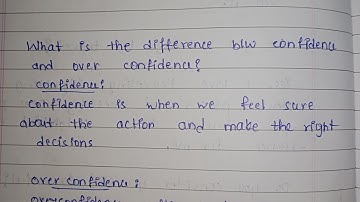 What is the difference b/w confidence
and over confidence?
confidence:
confidence is when we feel sure
about the action and make the right
decisions
over confidence:
overconfidence